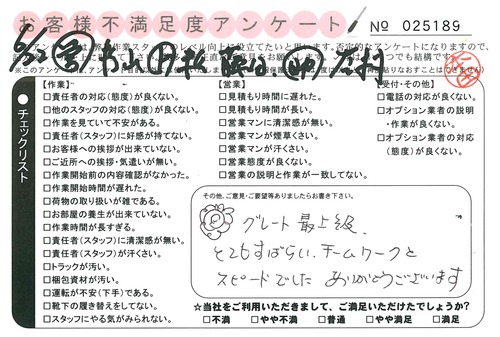 お客様不満足度アンケート
№ 025189
【作業】
□責任者の対応(態度)が良くない。
□他のスタッフの対応(態度)が良くない。
□作業を見ていて不安がある。
□責任者(スタッフ)に好感が持てない。
□お客様への挨拶が出来ていない。
□ご近所への挨拶・気遣いが無い。
□作業開始前の内容確認がなかった。
□作業開始時間が遅れた。
□荷物の取り扱いが雑である。
□お部屋の養生が出来ていない。
□作業時間が長すぎる。
□責任者(スタッフ)に清潔感が無い。
□責任者(スタッフ)が汗くさい。
□トラックが汚い。
□梱包資材が汚い。
□運転が不安(下手)である。
□靴下の履き替えをしてない。
□スタッフにやる気がみられない。
【営業】
□見積もり時間に遅れた。
□見積もり時間が長い。
□営業マンに清潔感が無い。
□営業マンが煙草くさい。
□営業マンが汗くさい。
□営業態度が良くない。
□営業の説明と作業が一致してない。
【受付・その他】
□電話の対応が良くない。
□オプション業者の説明
・作業が良くない。
□オプション業者の対応
(態度)が良くない。
チェックリスト
その他、ご意見・ご要望等ありましたらお書き下さい。
グレート最上級。
とてもすばらい、チームワークと
スピードでした ありがとうございます
☆当社をご利用いただきまして、ご満足いただけたでしょうか?
□不満 □やや不満 □普通 □やや満足 □満足